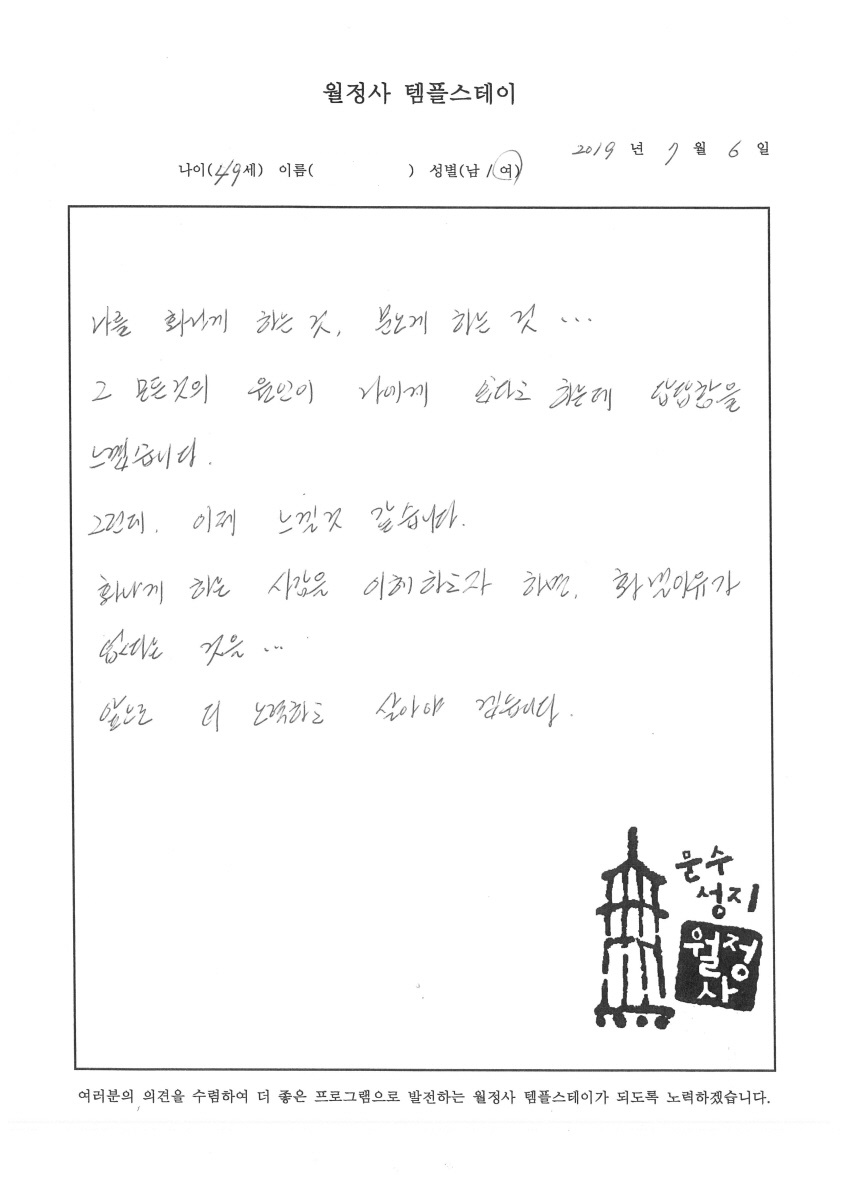 월정사 템플스테이
2019 년 7 월 6 일
나이(49세) 이름( ) 성별(남/여)
나를 화나게 하는 것, 분노케 하는 것 ...
그 모든것의 원인이 나에게 있다고 하는데 답답함을
느꼈습니다.
그런데. 이제 느낄것 같습니다.
화나게 하는 사람을 이해하고자 하면, 화낼이유가
없다는 것을 ...
앞으로 더 노력하고 살아야 겠습니다.
문수
성지
월정
사
여러분의 의견을 수렴하여 더 좋은 프로그램으로 발전하는 월정사 템플스테이가 되도록 노력하겠습니다.